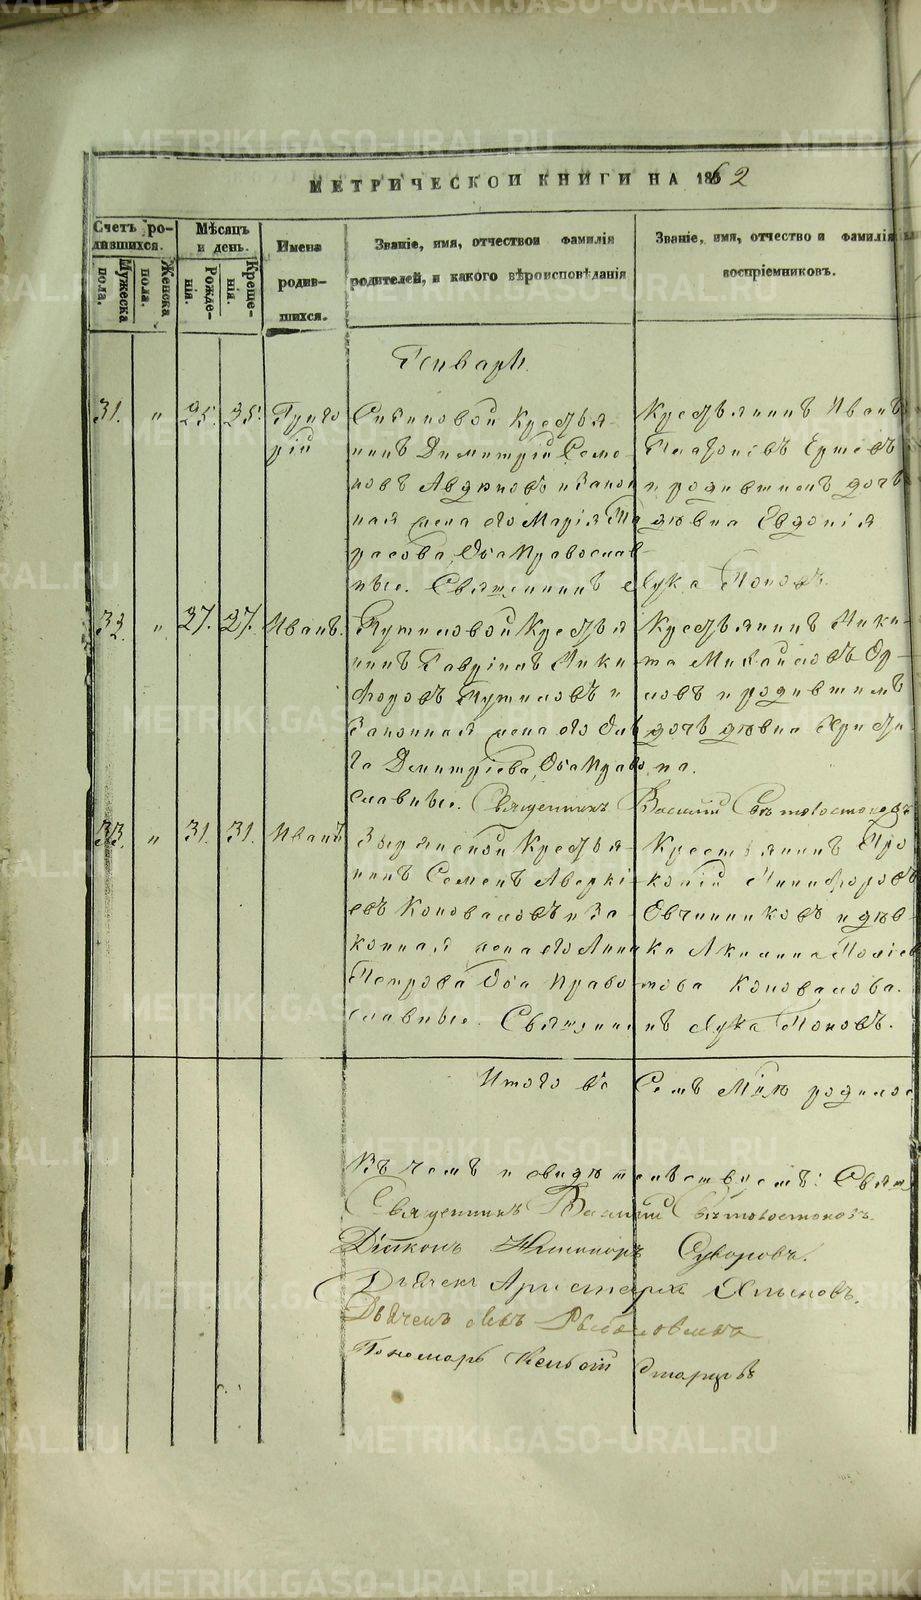 МЕТРИЧЕСКОЙ КНИГИ НА 1862
Счетъ ро-
дившихся.
Мужеска
пола.
Женска
пола.
Мѣсяцъ
и день.
Рожде-
нія.
Креще-
нія.
Имена
родив-
шихся.
Званіе, имя, отчество и фамилія
родителей, и какого вѣроисповѣданія
Званіе, имя, отчество и фамилія
воспріемниковъ.
Генварь.
31. " 25. 25. Григо
рій
крестья-
нинъ Димитрій Семе-
новъ Авдюковъ и закон
ная жена его Марія Та
расова, Оба православ-
ные. Священникъ Лука Поповъ.
Крестьянинъ Иванъ
Ершевъ
и родившимъ дочь
дѣвка Евдокія
32. " 27. 27. Иванъ.
Крестья
нинъ Гавріилъ Ники
форовъ и
законная жена его Оль
га Димитріева, Оба право
славные. Священникъ Василій
Крестьянинъ Ники-
та Михайловъ Ор-
ловъ и родившимъ
дочь дѣвка Христи
на.
33. " 31. 31. Иванъ
Зырянской Крестья
нинъ Семенъ Аверкі
евъ Коноваловъ и за
конная жена его Анна
Петрова Оба право
славные. Священникъ Лука Поповъ.
Крестьянинъ Про
копій Никифоровъ
Овчинниковъ и дѣв-
ка Акилина
Коновалова.
Итого въ Семъ М-цѣ родилос
Въ чемъ и свидѣтельствуемъ: Свящ
Священникъ Василій
Діаконъ Никаноръ Суворовъ.
Дьячекъ Аристархъ
Дьячекъ
Пономарь Старцевъ
METRIKI.GASO-URAL.RU